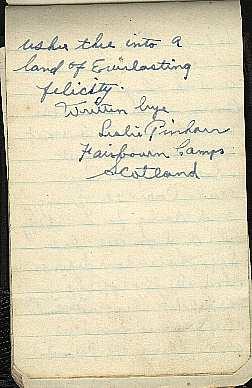 usher thee into a
land of Everlasting
felicity.
Written bye
Leslie Pinhorn
Fairbourn Camps
Scotland